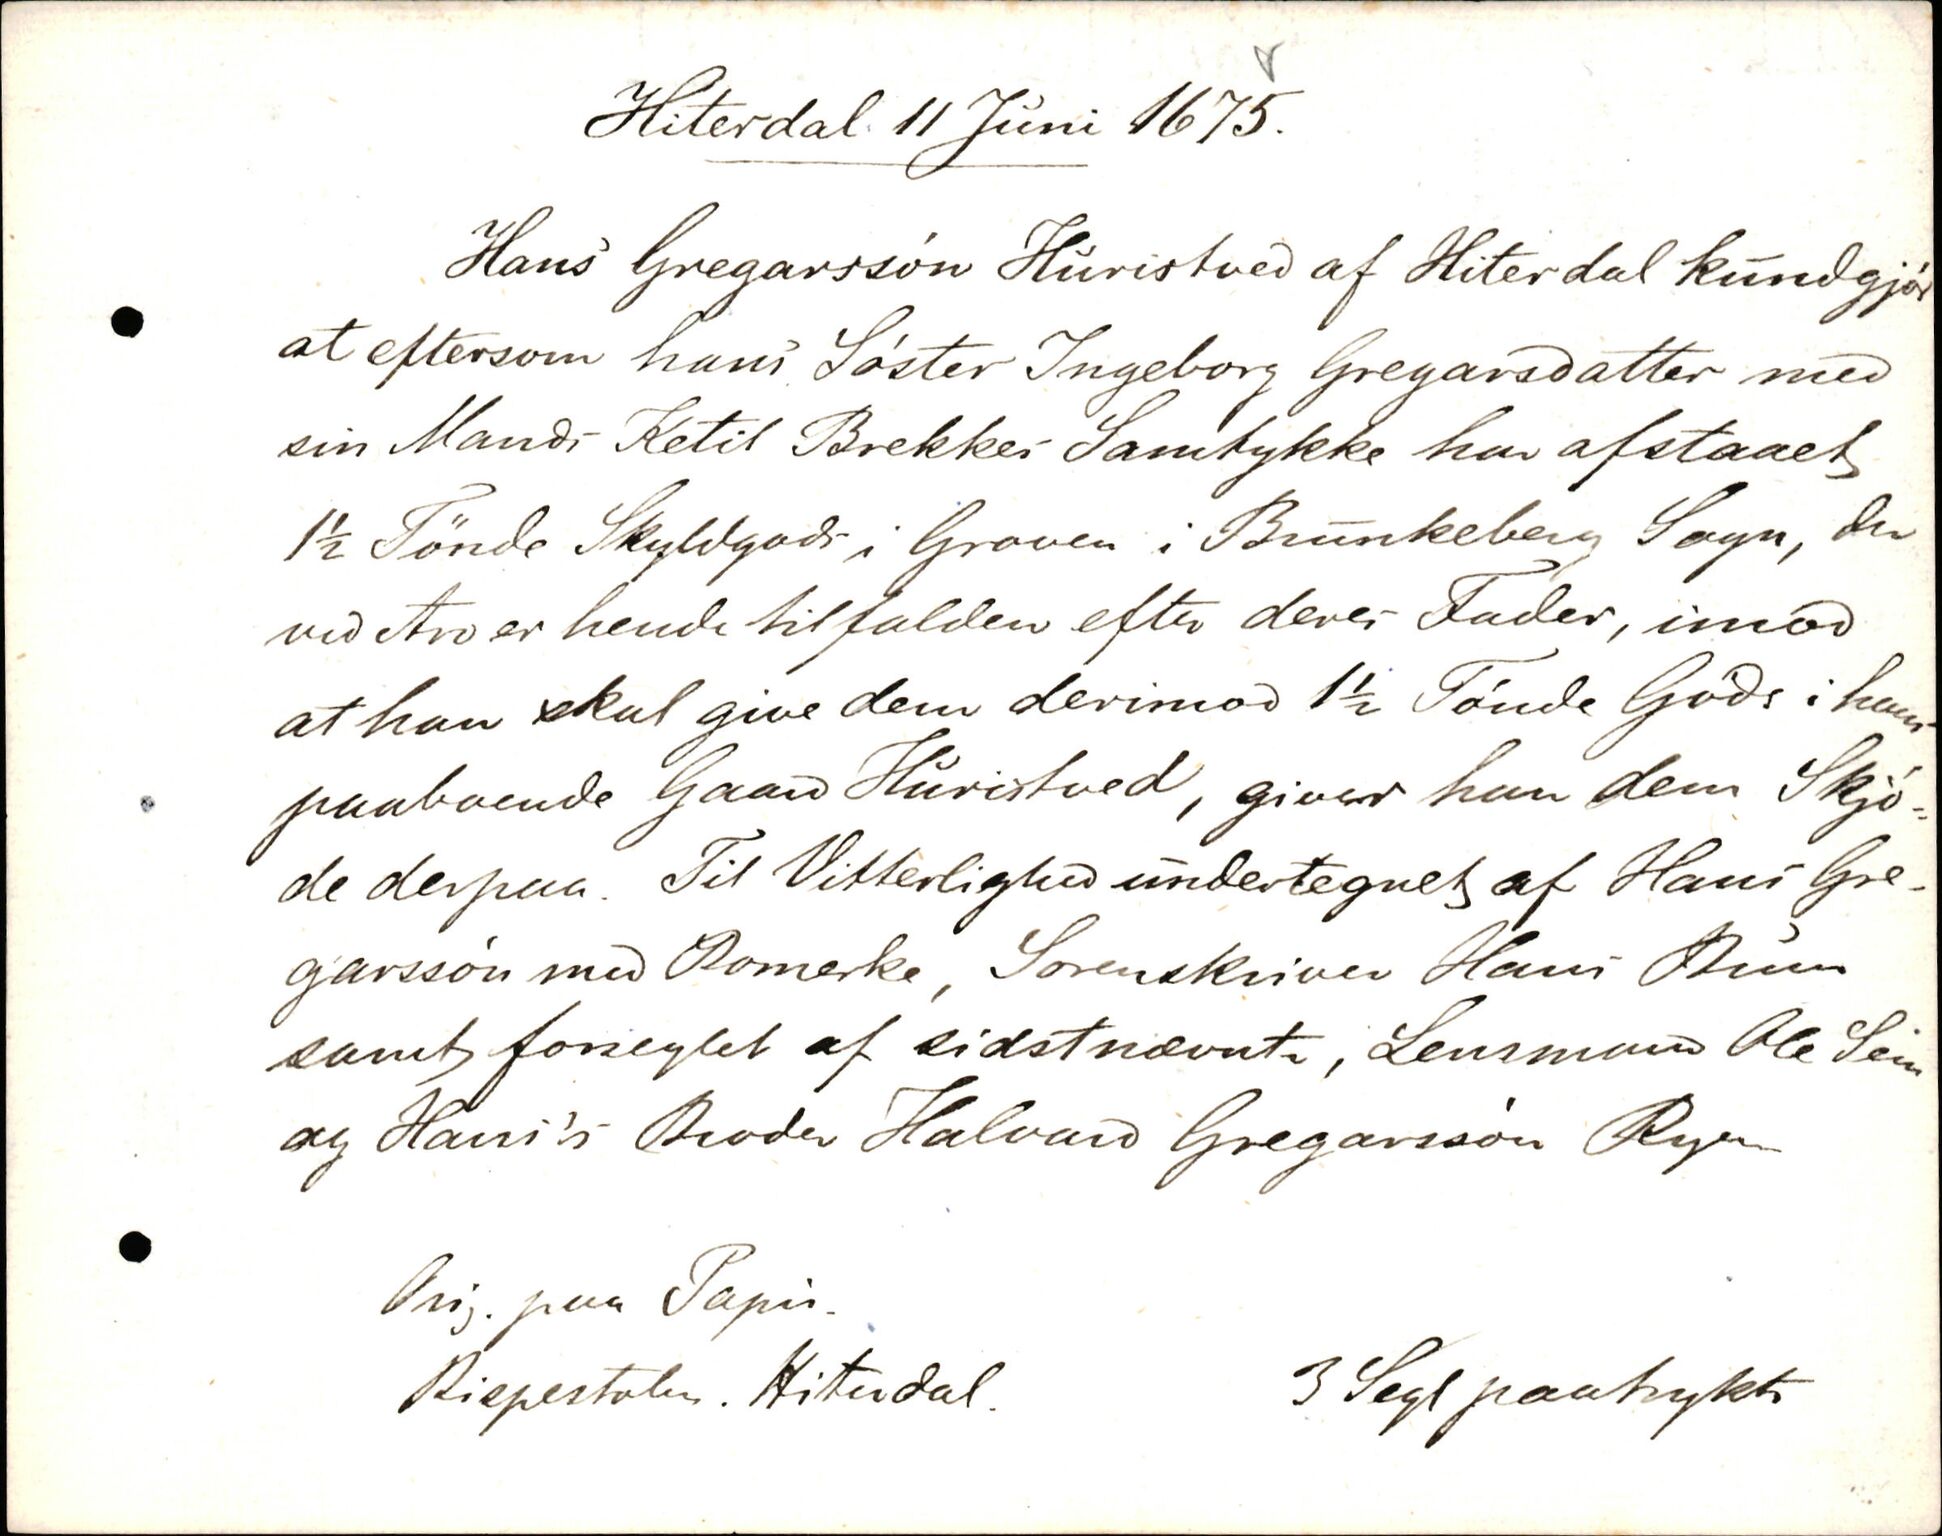 Hiterdal 11 Juni 1675.
Hans Gregarssön Huristved af Hiterdal kundgjör
at eftersom hans Söster Ingeborg Gregarsdatter med
sin Mands Ketil Brekkes Samtykke har afstaaet
1½ Tönde Skyldgods i Groven i Brunkeberg Sogn, der
ved Arv er hende tilfalden efter deres Fader, imod
at han skal give dem derimod 1½ Tönde Gods i hans
paaboende Gaard Huristved, giver han dem Skjö-
de derpaa. Til Vitterlighed undertegnet af Hans Gre-
garssön med Bomerke, Sorenskriver Hans Bruun
samt forseglet af sidstnævnte, Lensmand Ole Sem
og Hans's Broder Halvard Gregarssön Ryen
Orig. paa Papir.
Bispestolen. Hiterdal.
3 Segl paatrykte